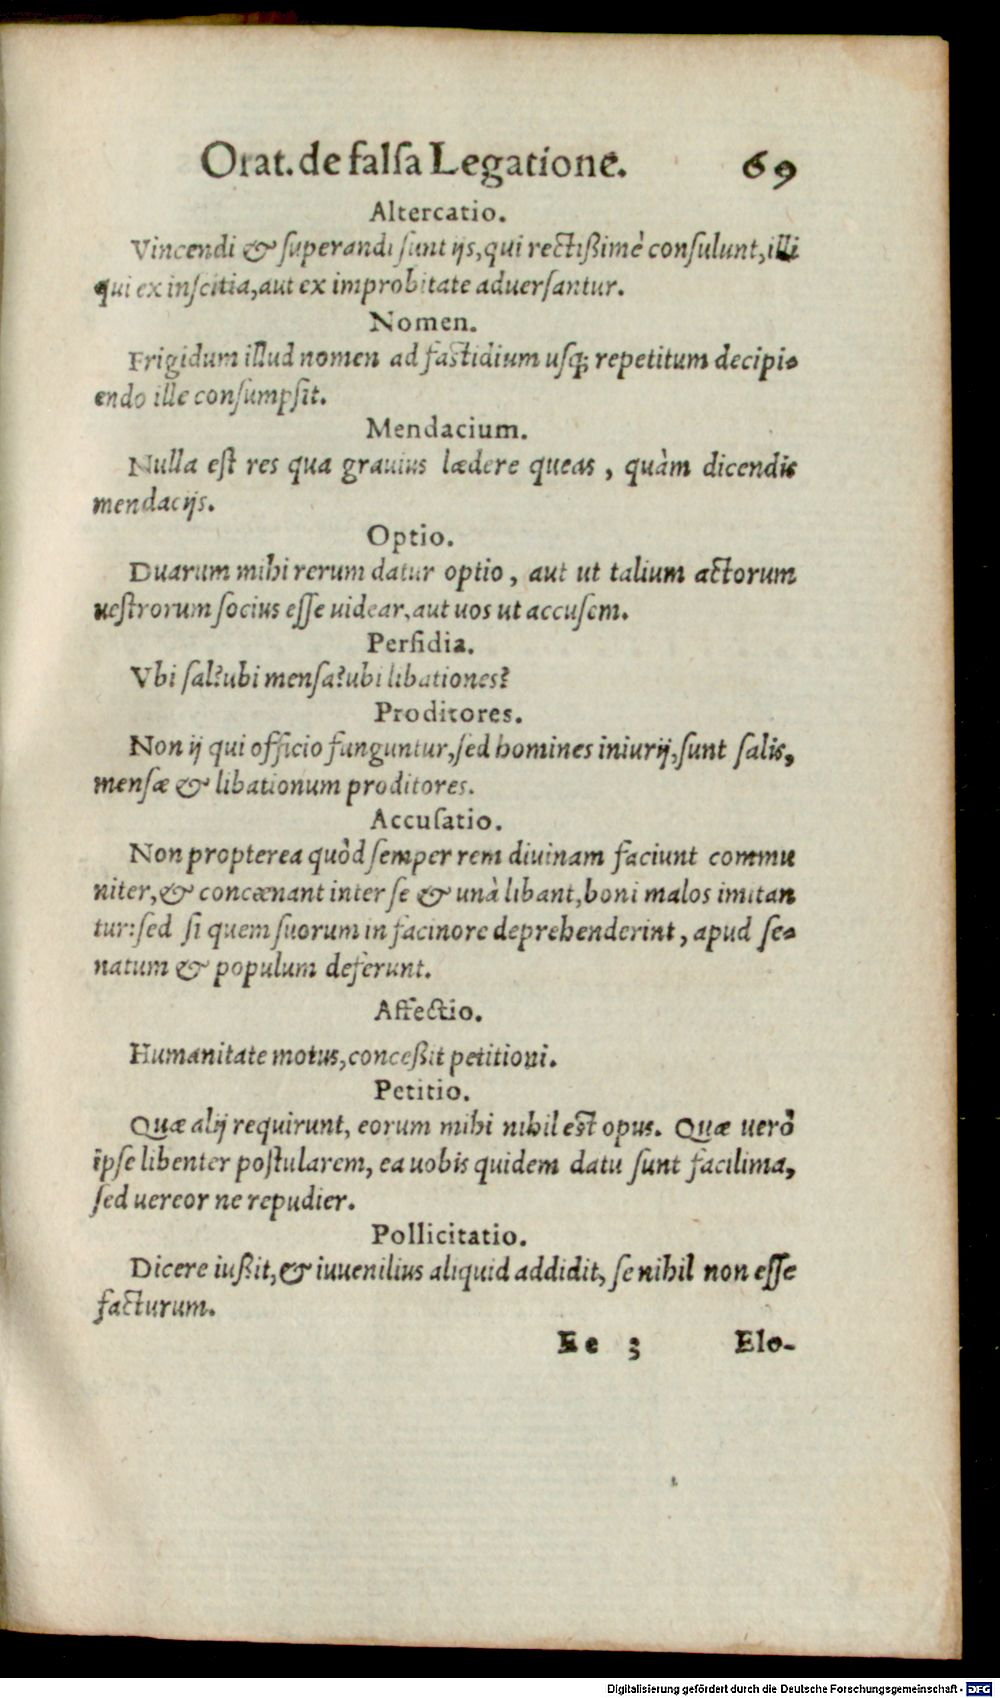 Orat. de falsa Legatione. 69
Altercatio.
Vincendi & superandi sunt ijs, qui rectißimè consulunt, illi
qui ex inscitia, aut ex improbitate aduersantur.
Nomen.
Frigidum illud nomen ad fastidium usq; repetitum decipi-
endo ille consumpsit.
Mendacium.
Nulla est res qua grauius lædere queas, quàm dicendis
mendacijs.
Optio.
Duarum mihi rerum datur optio, aut ut talium actorum
uestrorum socius esse uidear, aut uos ut accusem.
Perfidia.
Vbi sal? ubi mensa? ubi libationes?
Proditores.
Non ij qui officio funguntur, sed homines iniurij, sunt salis,
mensæ & libationum proditores.
Accusatio.
Non propterea quòd semper rem diuinam faciunt commu
niter, & concænant inter se & unà libant, boni malos imitan
tur: sed si quem suorum in facinore deprehenderint, apud se-
natum & populum deferunt.
Affectio.
Humanitate motus, conceßit petitioni.
Petitio.
Quæ alij requirunt, eorum mihi nihil est opus. Quæ uerò
ipse libenter postularem, ea uobis quidem datu sunt facilima,
sed uereor ne repudier.
Pollicitatio.
Dicere iußit, & iuuenilius aliquid addidit, se nihil non esse
facturum.
Ee 3 Elo-
Digitalisierung gefördert durch die Deutsche Forschungsgemeinschaft - DFG